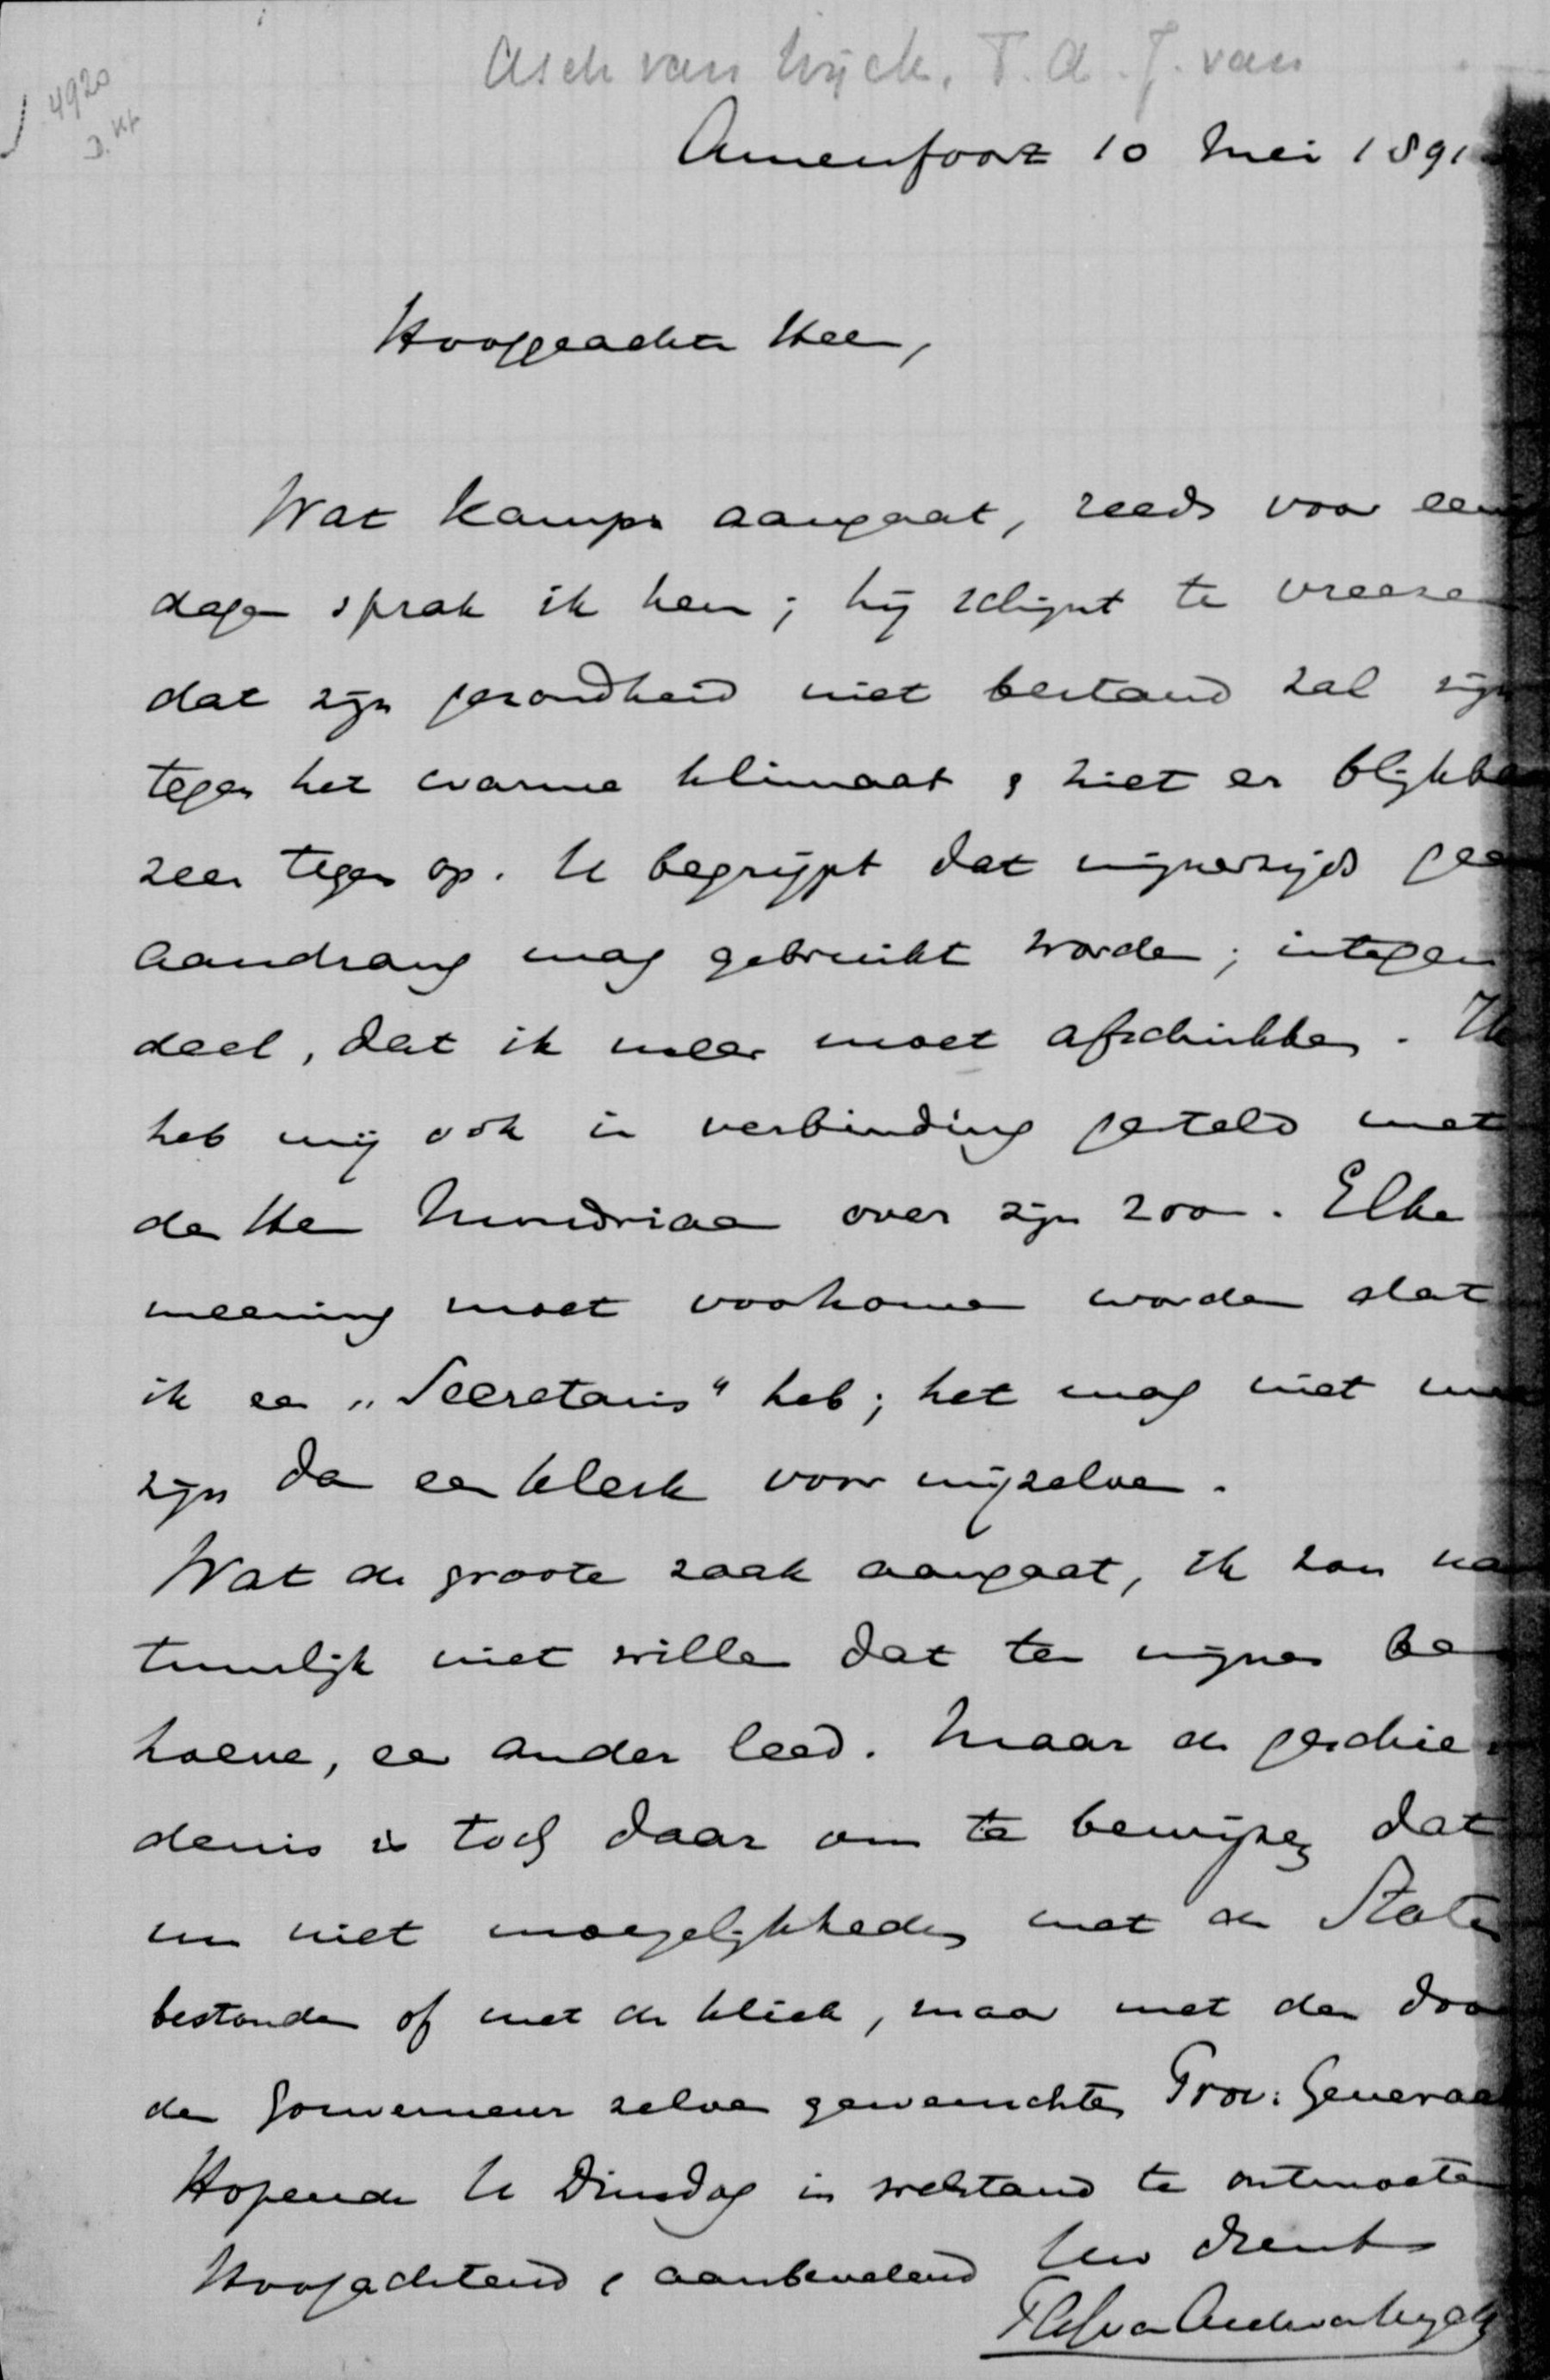 Asch van Wijck, T. A. J. van
4920
Amersfoort 10 Mei 1891
Hooggeachte Heer,
Wat Kamps aangaat, reeds voor eenige
dagen sprak ik hem; hij schijnt te vreezen
dat zijn gezondheid niet bestand zal zijn
tegen het warme klimaat & ziet er blijkbaar
zeer tegen op. U begrijpt dat mijnerzijds geen
aandrang mag gebruikt worden; integen
deel, dat ik meer moet afschrikken. Ik
heb mij ook in verbinding gesteld met
den Heer Mondriaan over zijn zoon. Elke
meening moet voorkomen worden dat
ik een „Secretaris" heb; het mag niet meer
zijn dan een klerk voor mijzelven.
Wat de groote zaak aangaat, ik zou na
tuurlijk niet willen dat ten mijnen be
hoeve, een ander leed. Maar de geschie
denis is toch daar om te bewijzen dat
nu niet moeyelijkheden met de Staten
bestonden of met de kliek, maar met den door
den Gouverneur zelven gewenschten Proc: Generaal
Hopende U Dinsdag in welstand te ontmoeten
Hoogachtend & aanbevelend Uw Dienst
TAJvanAschvanWijck